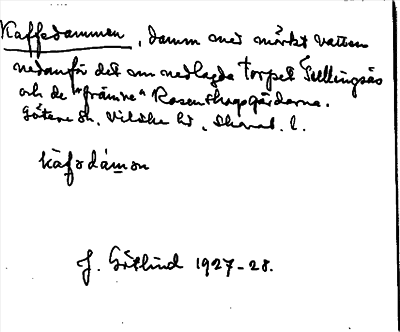 Kaffedammen, damm med mörkt vatten
nedanför det nu nedlagda torpet Tellingsås
och de "främre" Rosenskogsgårdarna.
Götene sn, Vilske hd, Skarab. l.
káfədám̲ən
J. Götlind 1927-28.